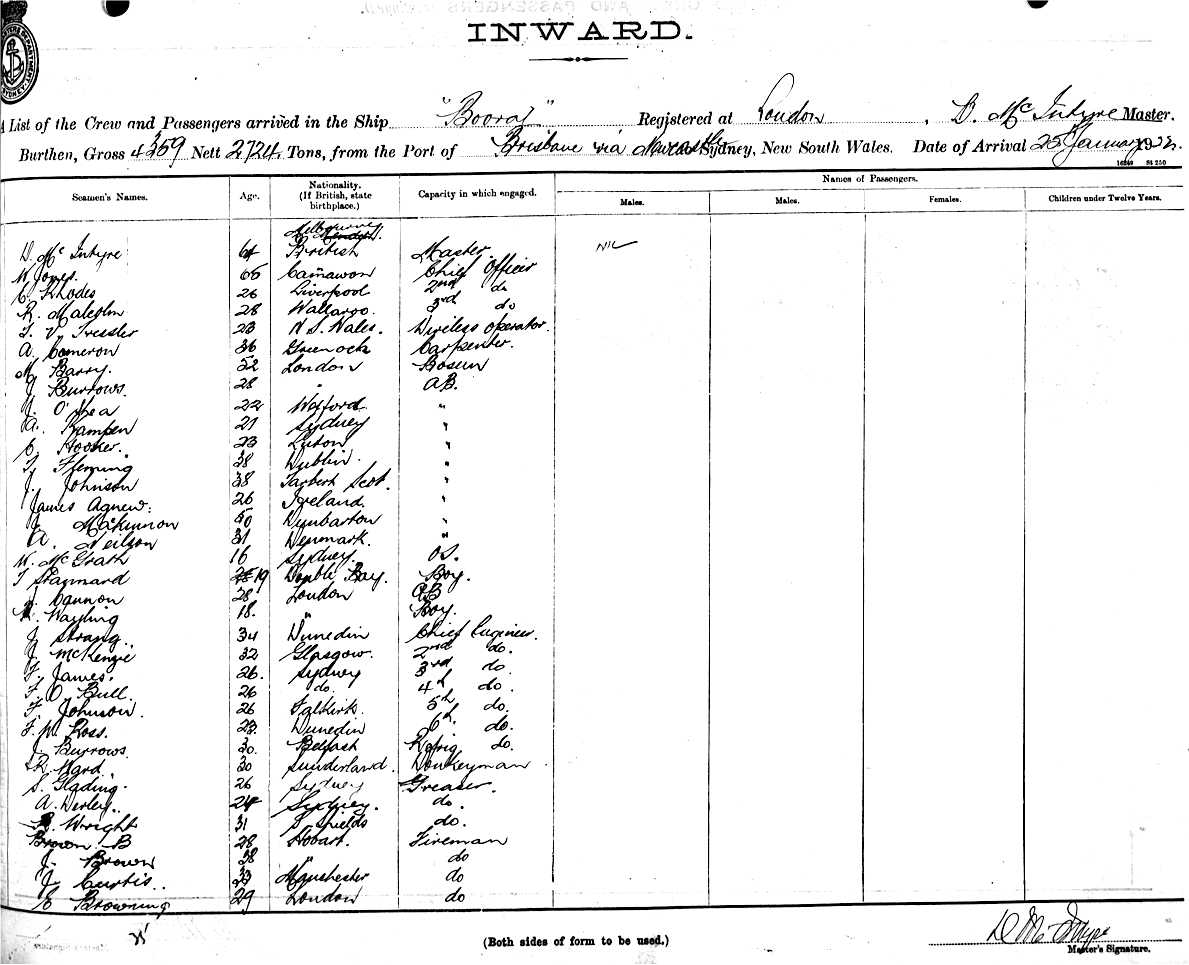 INWARD.
A List of the Crew and Passengers arrived in the Ship "Booral" Registered at London, D. McIntyre Master.
Burthen, Gross 4369 Nett 2724 Tons, from the Port of Brisbane via Newcastle Sydney, New South Wales. Date of Arrival 25 January 1922.
16249 St 250
Names of Passengers.
Seamen's Names. Age. Nationality. (If British, state birthplace.) Capacity in which engaged. Males. Males. Females. Children under Twelve Years.
Melbourne
D. McIntyre 64 British Master NIL
W. Jones. 65 Carnawon Chief Officer
C. Rhodes 26 Liverpool 2nd do
R. Malcolm 28 Wallaroo. 3rd do
T. V. Tressler 23 N. S. Wales. Wireless Operator.
A. Cameron 36 Greenock Carpenter.
M. Barry. 52 London Bosun
J. Burrows. 28 " A.B.
J. O'Shea 22 Wexford "
A. Kampen 21 Sydney "
C. Hooker. 23 Luton "
T. Fleming 38 Dublin. "
J. Johnson 38 Tarbert Scot. "
James Agnew. 26 Ireland. "
J. McKinnon 50 Dumbarton "
A. Neilson 31 Denmark. "
W. McGrath 16 Sydney. O.S.
T Stannard 19 Double Bay. Boy.
J. Cannon 28 London AB
Wayling 18. " Boy.
J. Strang. 34 Dunedin Chief Engineer.
J. McKenzie 32 Glasgow. 2nd do.
F. James. 26. Sydney 3rd do.
F. O. Bull. 26 do. 4th do.
F. Johnson. 26 Falkirk. 5th do.
F. W. Ross. 23. Dunedin 6th. do.
J. Burrows. 30. Belfast Refrig do.
R. Ward. 30 Sunderland. Donkeyman
S. Glading. 26 Sydney Greaser.
A. Desley. 24 Sydney. do.
R. Wright 31 S. Shields do.
Brown B 28 Hobart. Fireman
J. Brown 38 " do
J. Curtis. 33 Manchester do
E. Browning 29 London do
(Both sides of form to be used.)
D McIntyre
Master's Signature.